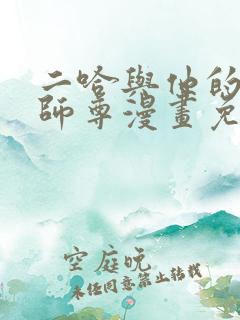 二哈與他的
師尊漫畫免
空庭晚
未经同意禁止转载